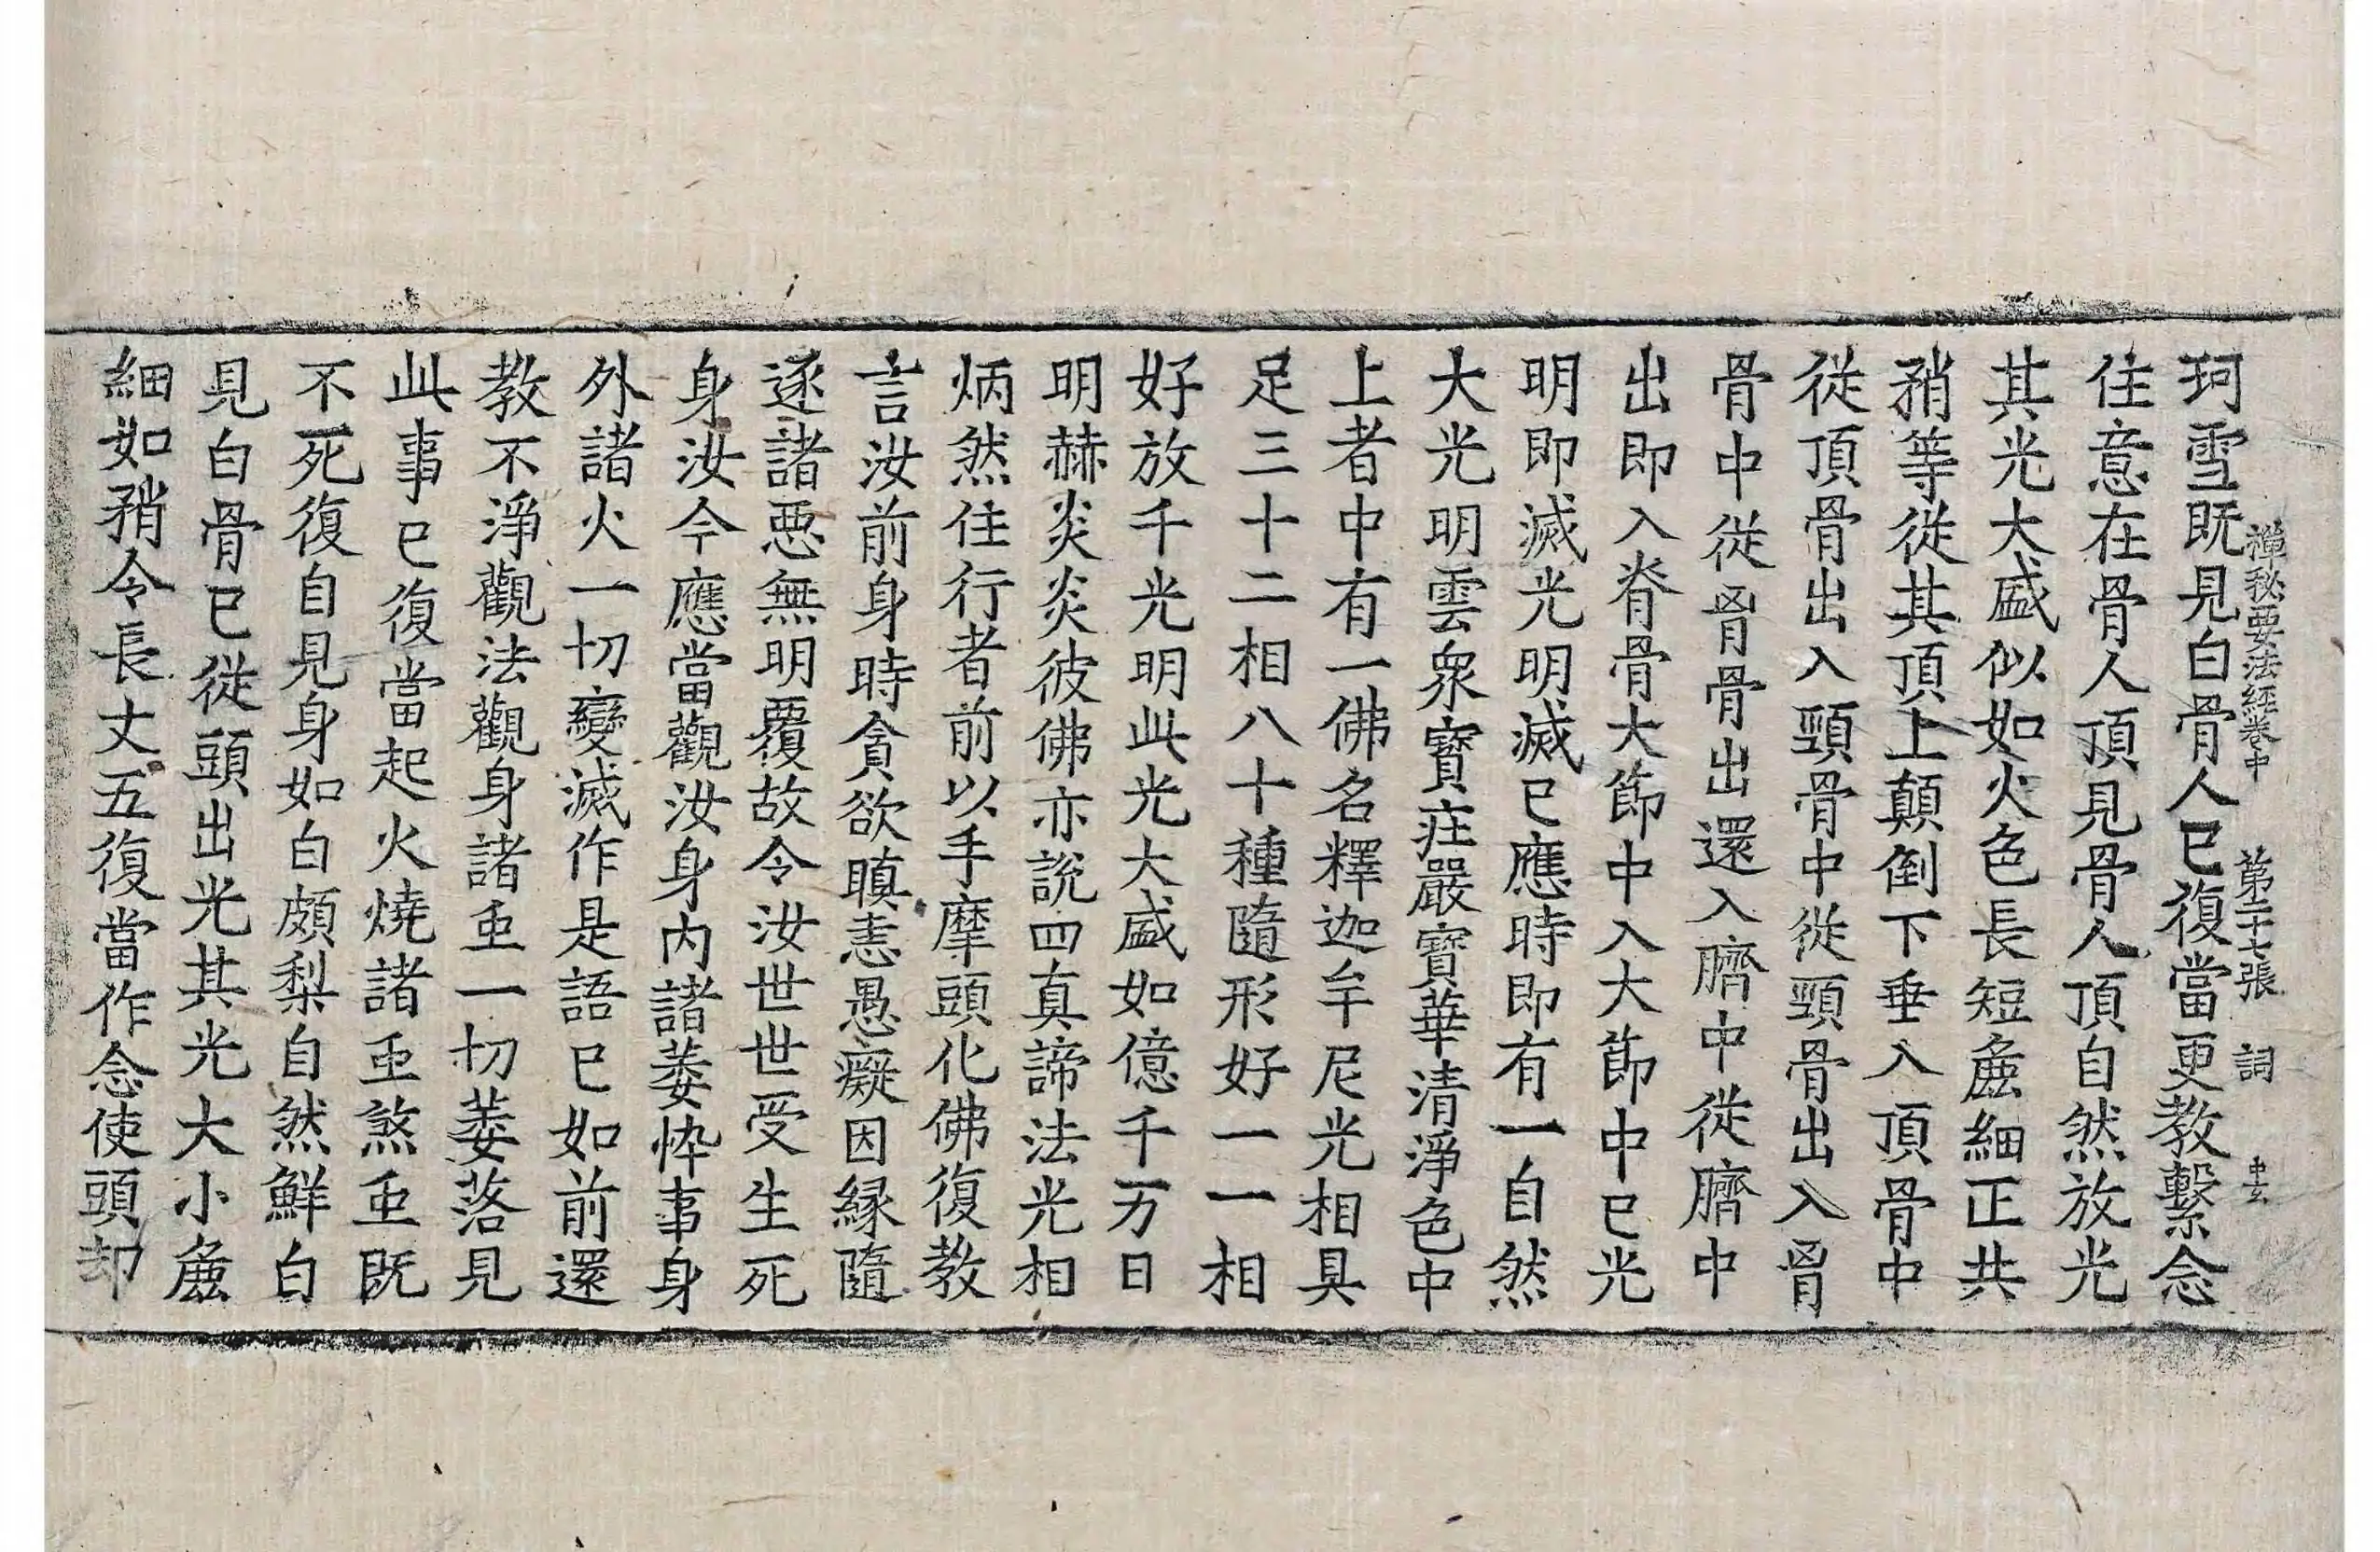 禪秘要法經卷中　第二十七張　詞
珂雪既見白骨人已復當更教繫念
住意在骨人頂見骨人頂自然放光
其光大盛似如火色長短麁細正共
矟等從其頂上顛倒下垂入頂骨中
從頂骨出入頸骨中從頸骨出入胷
骨中從胷骨出還入臍中從臍中
出即入脊骨大節中入大節中已光
明即滅光明滅已應時即有一自然
大光明雲衆寶莊嚴寶華清淨色中
上者中有一佛名釋迦牟尼光相具
足三十二相八十種隨形好一一相
好放千光明此光大盛如億千万日
明赫炎炎彼佛亦說四真諦法光相
炳然住行者前以手摩頭化佛復教
言汝前身時貪欲瞋恚愚癡因緣隨
逐諸惡無明覆故令汝世世受生死
身汝今應當觀汝身內諸萎悴事身
外諸火一切變滅作是語已如前還
教不淨觀法觀身諸虫一切萎落見
此事已復當起火燒諸虫煞虫既
不死復自見身如白頗梨自然鮮白
見白骨已從頭出光其光大小麁
細如矟令長丈五復當作念使頭却